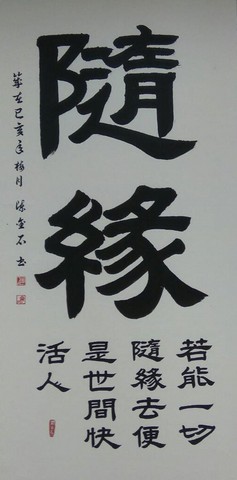 隨緣
若能一切
隨緣去便
是世間快
活人
歲在己亥年梅月
金石书